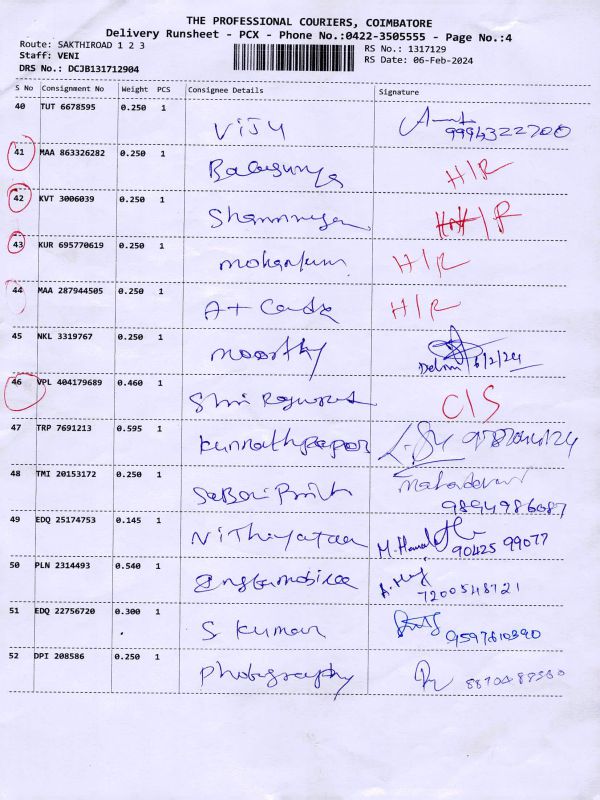 THE PROFESSIONAL COURIERS, COIMBATORE
Delivery Runsheet - PCX - Phone No.:0422-3505555 - Page No.:4
Route: SAKTHIROAD 1 2 3 RS No.: 1317129
Staff: VENI RS Date: 06-Feb-2024
DRS No.: DCJB131712904
S No Consignment No Weight PCS Consignee Details Signature
40 TUT 6678595 0.250 1 Viju
9994322700
41 MAA 863326282 0.250 1 H/R
42 KVT 3006039 0.250 1 H/R
43 KUR 695770619 0.250 1 H/R
44 MAA 287944505 0.250 1 H/R
45 NKL 3319767 0.250 1 moorthy
6/2/24
46 VPL 404179689 0.460 1 Shri C/S
47 TRP 7691213 0.595 1
48 TMI 20153172 0.250 1
9894986087
49 EDQ 25174753 0.145 1
90425 99077
50 PLN 2314493 0.540 1
7200548721
51 EDQ 22756720 0.300 1 S Kumar
9597610390
52 DPI 208586 0.250 1 Photography